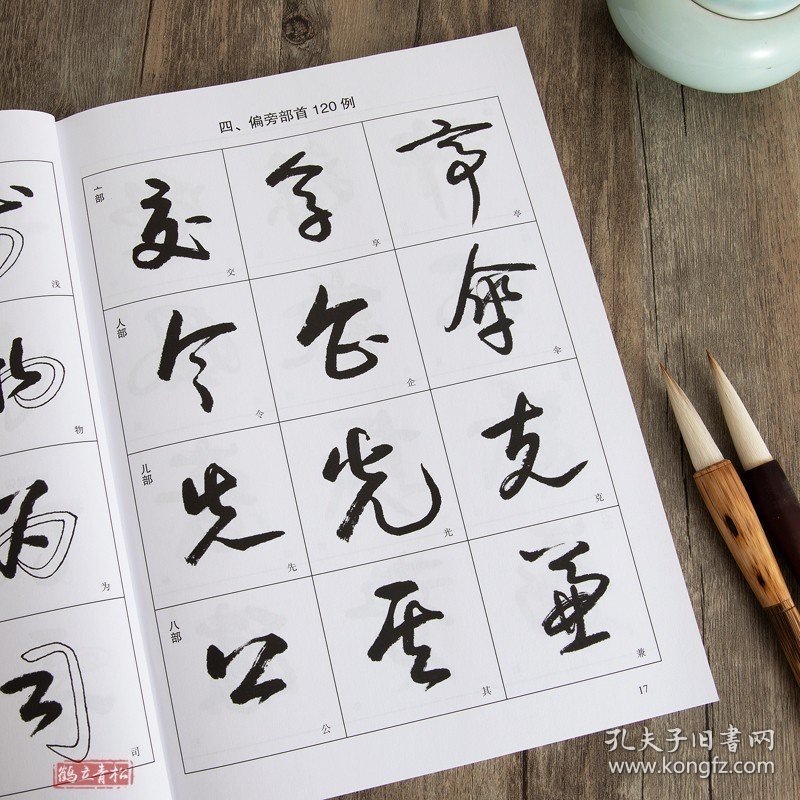 四、偏旁部首120例
亠部
交
享
亭
人部
令
企
伞
儿部
先
光
克
八部
公
其
兼
17
浅
物
为
司
鹤立青松
孔夫子旧书网
www.kongfz.com